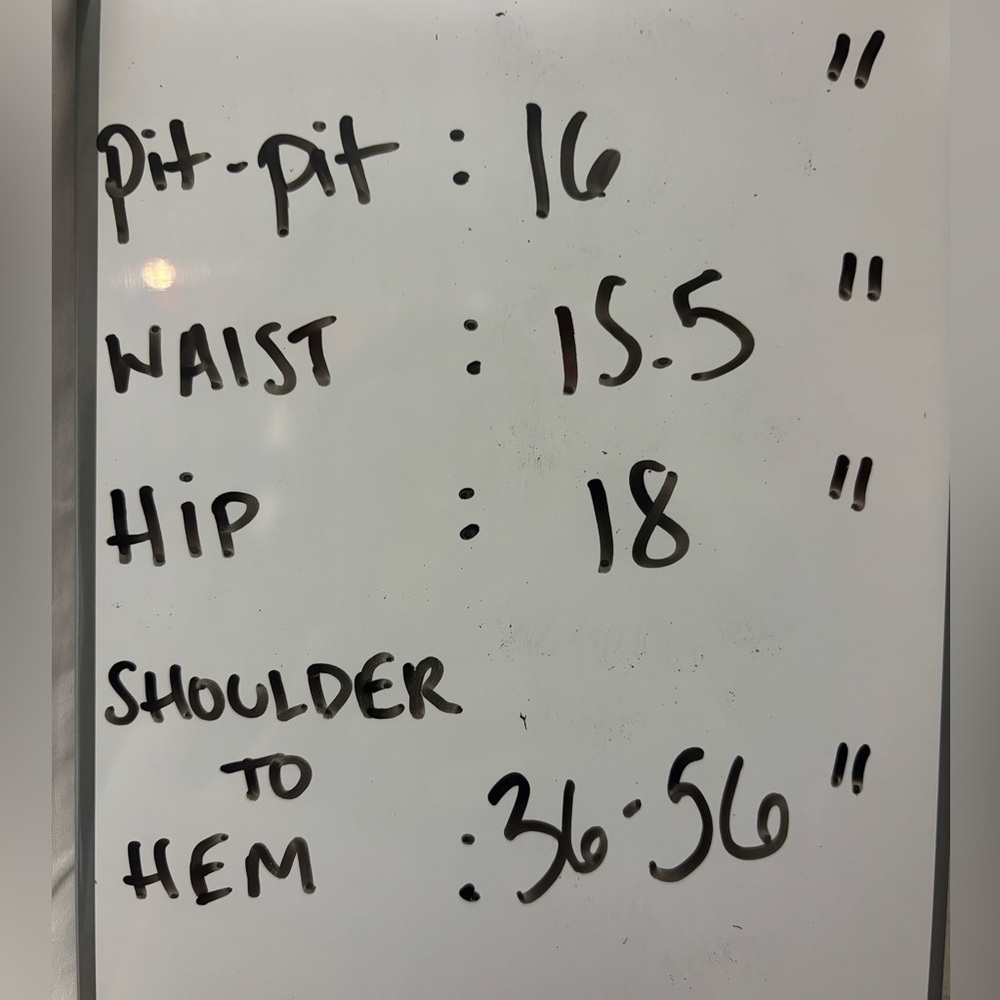 pit-pit : 16 "
WAIST : 15.5 "
HiP : 18 "
SHOULDER
TO
HEM : 36-56 "